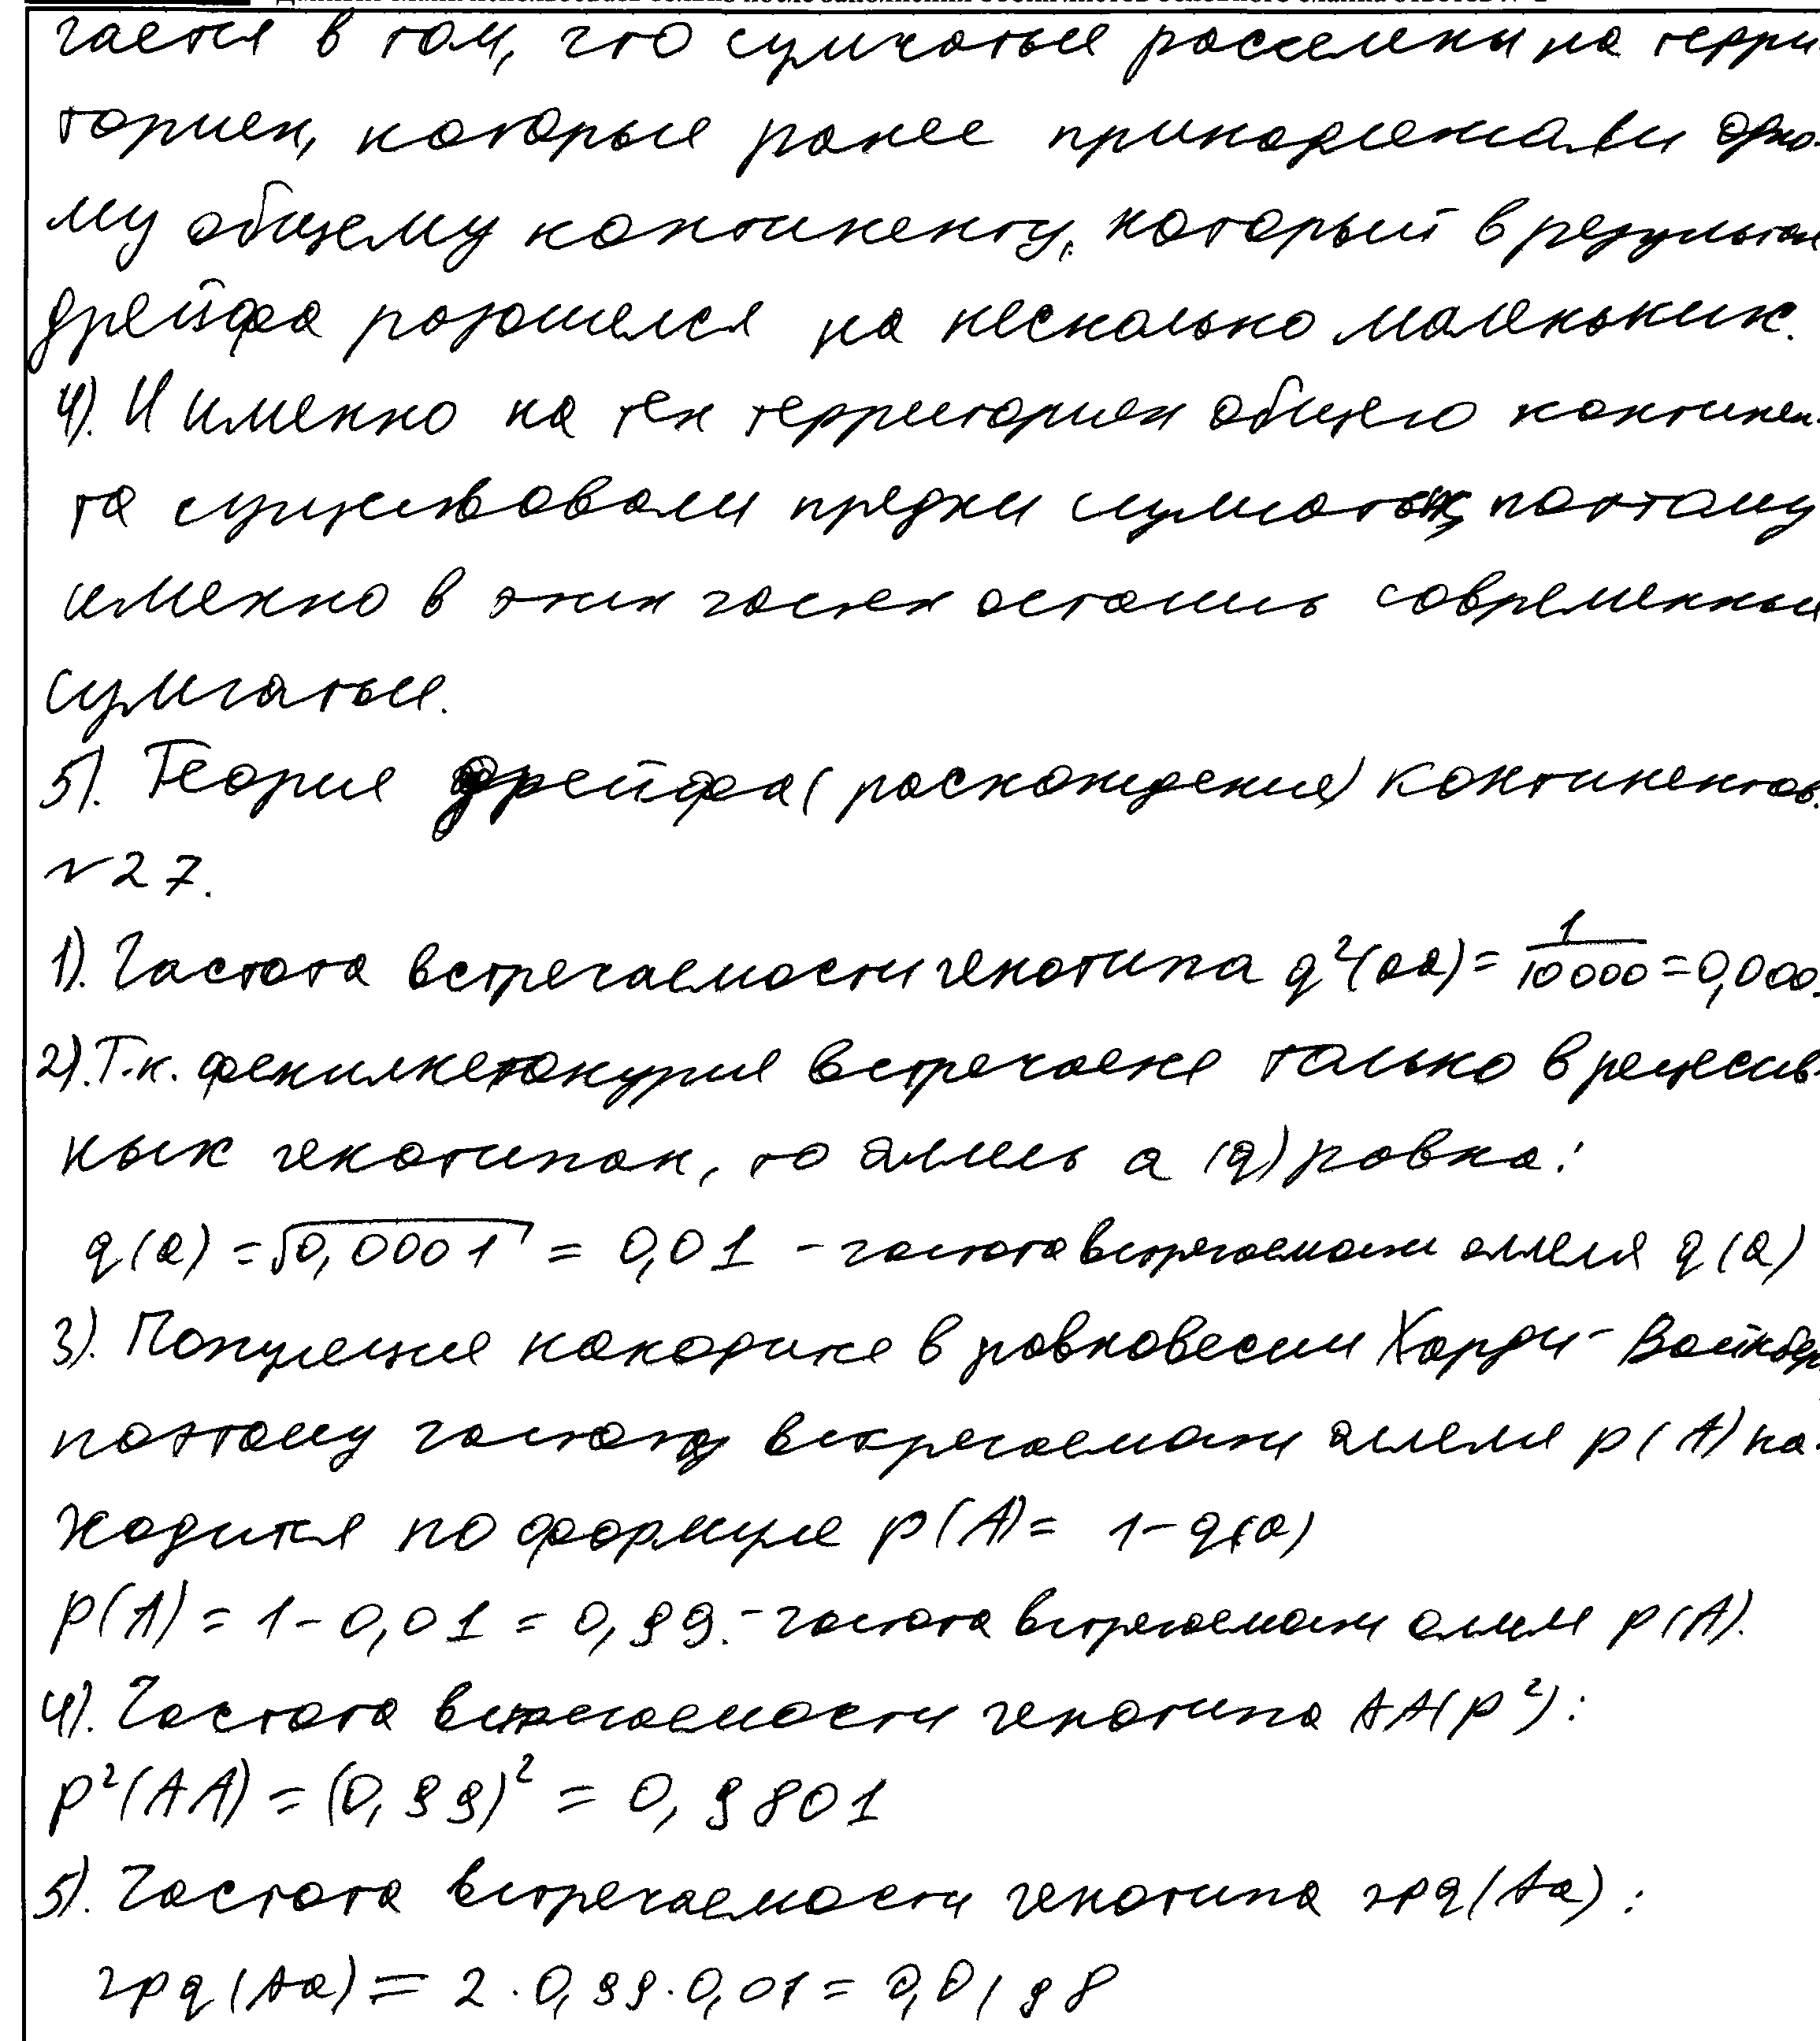 чается в том, что сумчатые расселены на терри-
ториях, которые ранее принадлежали одно-
му общему континенту, который в результате
дрейфа разошелся на несколько маленьких.
4). И именно на тех территориях общего континен-
та существовали предки сумчатых, поэтому
именно в этих частях остались современные
сумчатые.
5). Теория дрейфа (расхождения) континентов.
№27.
1). Частота встречаемости генотипа q²(aa) = 1/10000 = 0,000
2). Т.к. фенилкетонурия встречается только в рецессив-
ных генотипах, то аллель a (q) равна:
q(a) = √0,0001 = 0,01 - частота встречаемости аллеля q(a)
3). Популяция находится в равновесии Харди - Вайнбер
поэтому частота встречаемости аллеля p(A) на-
ходится по формуле p(A) = 1 - q(a)
p(A) = 1 - 0,01 = 0,99. - частота встречаемости аллеля p(A).
4). Частота встречаемости генотипа AA(p²):
p²(AA) = (0,99)² = 0,9801
5). Частота встречаемости генотипа 2pq(Aa):
2pq(Aa) = 2 · 0,99 · 0,01 = 0,0198